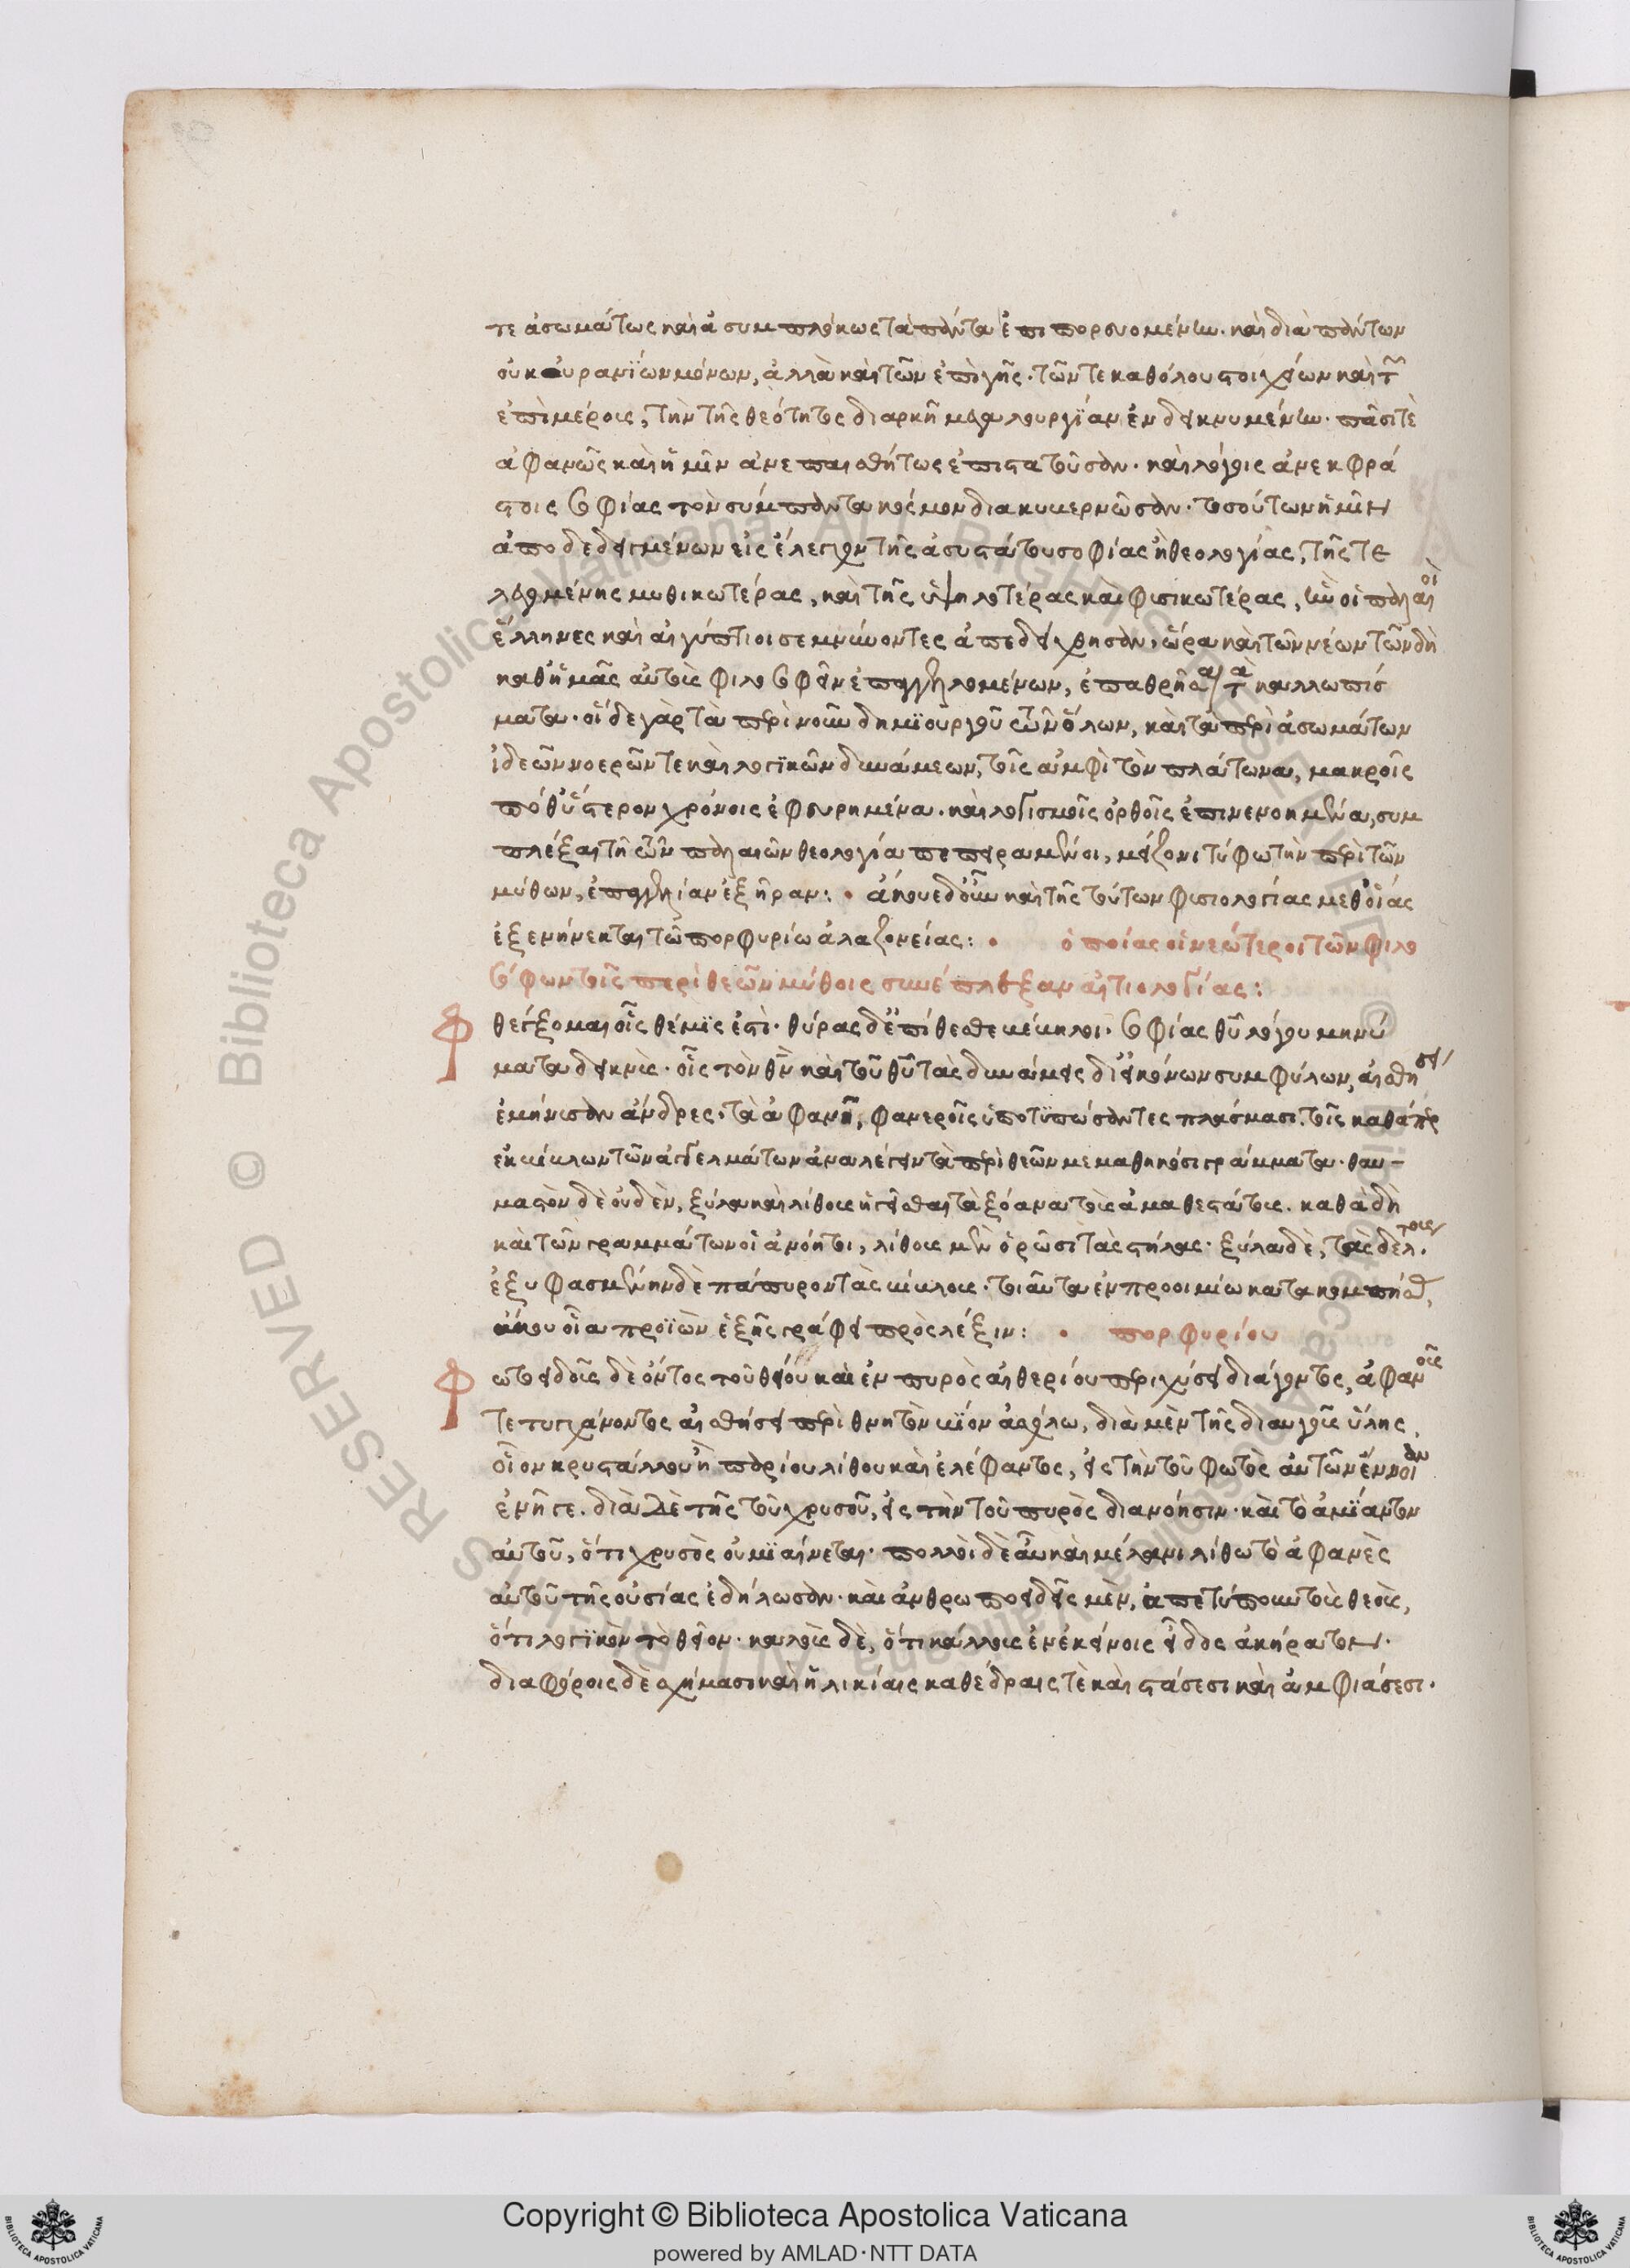 τε ἀσωμάτως καὶ ἀσυμπλόκως τὰ πάντα ἐπιπορευομένω. καὶ διὰ πάντων
οὐκ οὐρανίων μόνων, ἀλλὰ καὶ τῶν ἐπὶ γῆς. τῶν τε καθόλου στοιχείων καὶ τῶν
ἐπὶ μέρους, τὴν τῆς θεότητος διαρκῆ μεγαλουργίαν ἐνδεικνυμένω. πᾶσι τὲ
ἀφανῶς καὶ ἡμῖν ἀνεπαισθήτως ἐπιστατοῦσαν. καὶ λόγοις ἀνεκφρά
στοις σοφίας τὸν σύμπαντα κόσμον διακυβερνῶσαν. τοσούτων ἡμῖν
ἀποδεδειγμένων εἰς ἔλεγχον τῆς ἀσυστάτου σοφίας ἢ θεολογίας, τῆς τε
λεγομένης μυθικωτέρας, καὶ τῆς ὑψηλοτέρας καὶ φυσικωτέρας, ἣν οἱ παλαιοὶ
ἕλληνες καὶ αἰγύπτιοι σεμνύνοντες ἀπεδείχθησαν, ὥρα καὶ τῶν νέων τῶν δὴ
καθ' ἡμᾶς αὐτοὺς φιλοσοφεῖν ἐπαγγελλομένων, ἐπαθρῆσαι τὰ καλλωπίσ
ματα. οἵδε γὰρ τὰ περὶ νοῦ δημιουργοῦ τῶν ὅλων, καὶ τὰ περὶ ἀσωμάτων
ἰδεῶν νοερῶν τε καὶ λογικῶν δυνάμεων, τοῖς ἀμφὶ τὸν πλάτωνα, μακροῖς
πόθ' ὕστερον χρόνοις ἐφευρημένα. καὶ λογισμοῖς ὀρθοῖς ἐπινενοημένα, συμ
πλέξαι τῇ τῶν παλαιῶν θεολογία πεπειραμένοι, μείζονι τύφω τὴν περὶ τῶν
μύθων, ἐπαγγελίαν ἐξῆραν: • ἄκουε δ' οὖν καὶ τῆς τούτων φυσιολογίας μεθ' οἵας
ἐξενήνεκται τῶ πορφυρίω ἀλαζονείας: • ὁποίας οἱ νεώτεροι τῶν φιλο
σόφων τοῖς περὶ θεῶν μύθοις συνέπλεξαν αἰτιολογίας:
Φθέγξομαι οἷς θέμις ἐστὶ. θύρας δ' ἐπίθεσθε βέβηλοι. σοφίας θεολόγου νοήμα
ματα δεικνὺς. οἷς τὸν θν καὶ τοῦ θυ τὰς δυνάμεις δι' εἰκόνων συμφύλων, αἰσθήσει
ἐμήνυσαν ἄνδρες. τὰ ἀφανῆ, φανεροῖς ἀποτυπώσαντες πλάσμασι. τοῖς καθάπερ
ἐκ βίβλων τῶν ἀγαλμάτων ἀναλέγειν τὰ περὶ θεῶν μεμαθηκόσι γράμματα. θαυ-
μαστὸν δὲ οὐδὲν, ξύλα καὶ λίθους ἡγεῖσθαι τὰ ξόανα τοὺς ἀμαθεστάτους. καθὰ δὴ
καὶ τῶν γραμμάτων οἱ ἀνόητοι, λίθους μὲν ὁρῶσι τὰς στήλας. ξύλα δὲ, τὰς δέλτους.
ἐξυφασμένην δὲ πάπυρον τὰς βίβλους. τοιαῦτα ἐν προοιμίω κατακομπάσας,
ἄκου οἷα προϊὼν ἑξῆς γράφει πρὸς λέξιν: • πορφυρίου
Φωτοειδοῦς δὲ ὄντος τοῦ θείου καὶ ἐν πυρὸς αἰθερίου περιχύσει διάγοντος, ἀφανοῦς
τε τυγχάνοντος αἰσθήσει περὶ θνητὸν βίον ἀσχόλω, διὰ μὲν τῆς διαυγοῦς ὕλης,
οἷον κρυστάλλου ἢ παρίου λίθου καὶ ἐλέφαντος, εἰς τὴν τοῦ φωτὸς αὐτῶν ἔννοιαν
ἐνῆγε. διὰ δὲ τῆς τοῦ χρυσοῦ, εἰς τὴν τοῦ πυρὸς διανόησιν. καὶ τὸ ἀμίαντον
αὐτοῦ, ὅτι χρυσὸς οὐ μιαίνεται. πολλοὶ δὲ αὖ καὶ μέλανι λίθω τὸ ἀφανὲς
αὐτοῦ τῆς οὐσίας ἐδήλωσαν. καὶ ἀνθρωποειδεῖς μὲν, ἀπετύπουν τοὺς θεοὺς,
ὅτι λογικὸν τὸ θεῖον. καλοὺς δὲ, ὅτι κάλλος ἐν ἐκείνοις εἶδος ἀκήρατον.
διαφόροις δὲ σχήμασι καὶ ἡλικίαις καθέδραις τὲ καὶ στάσεσι καὶ ἀμφιάσεσι.
Copyright © Biblioteca Apostolica Vaticana
powered by AMLAD·NTT DATA